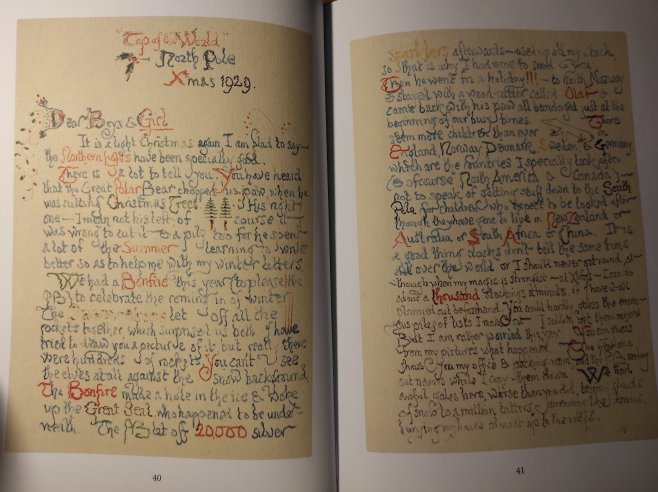 "Top of the World"
North Pole
Xmas 1929.
Dear Boys & Girl
It is a light Christmas again, I am glad to say—
the Northern Lights have been specially good.
There is a lot to tell you. You have heard
that the Great Polar Bear chopped his paw when he
was cutting Christmas Trees His right
one — I mean not his left of course it
was wrong to cut it & a pity too for he spent
a lot of the Summer learning to write
better so as to help me with my winter letters.
We had a Bonfire this year (to please the
PB) to celebrate the coming in of winter
The let off all the
rockets together which surprised us both. I have
tried to draw you a picture of it but really there
were hundreds of rockets You can't see
the elves at all against the snow background.
The Bonfire made a hole in the ice & woke
up the Great Seal who happened to be under-
neath The PB let off 20,000 silver
40
sparklers afterwards — used up all my stock,
so that is why I had none to send you.
Then he went for a holiday!!! — to north Norway
& stayed with a wood-cutter called Olaf &
came back with his paw all bandaged just at the
beginning of our busy times. There
seem more children than ever in
England, Norway, Denmark, Sweden & Germany
which are the countries I specially look after
(& of course North America & Canada) —
not to speak of getting stuff down to the South
Pole for children who expect to be looked after
though they have gone to live in New Zealand or
Australia or South Africa or China. It is
a good thing clocks don't tell the same time
all over the world or I should never get round, al-
though when my magic is strongest — at Xmas — I can do
about a thousand stockings a minute if I have it all
planned out beforehand. You could hardly guess the enorm-
ous piles of lists I make out I seldom get them mixed
But I am rather worried this year You can guess
from my pictures what happened The first one
shows you my office & packing room and the PB reading
out names while I copy them down We had
awful gales here, worse than you did, tearing clouds
of snow to a million tatters screaming like demons,
burying my house almost up to the roofs.
41